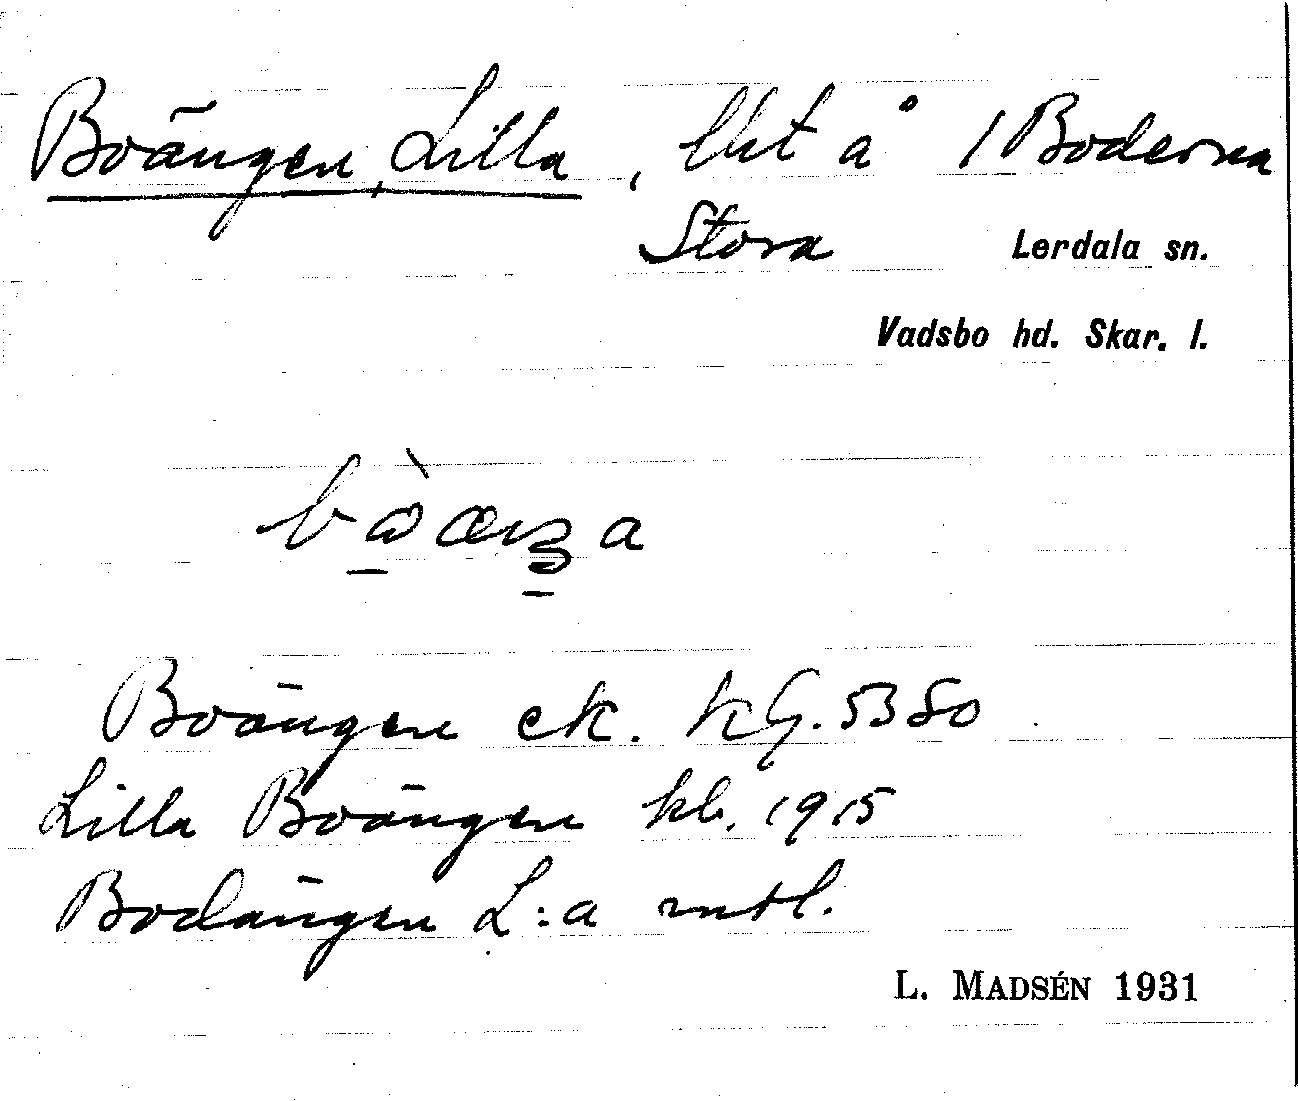 Boängen, Lilla, lht å 1 Boderna
Stora Lerdala sn.
Vadsbo hd. Skar. l.
Boängen ek. kG. 5380
Lilla Boängen kb. 1915
Bodängen L:a mtl.
L. MADSÉN 1931